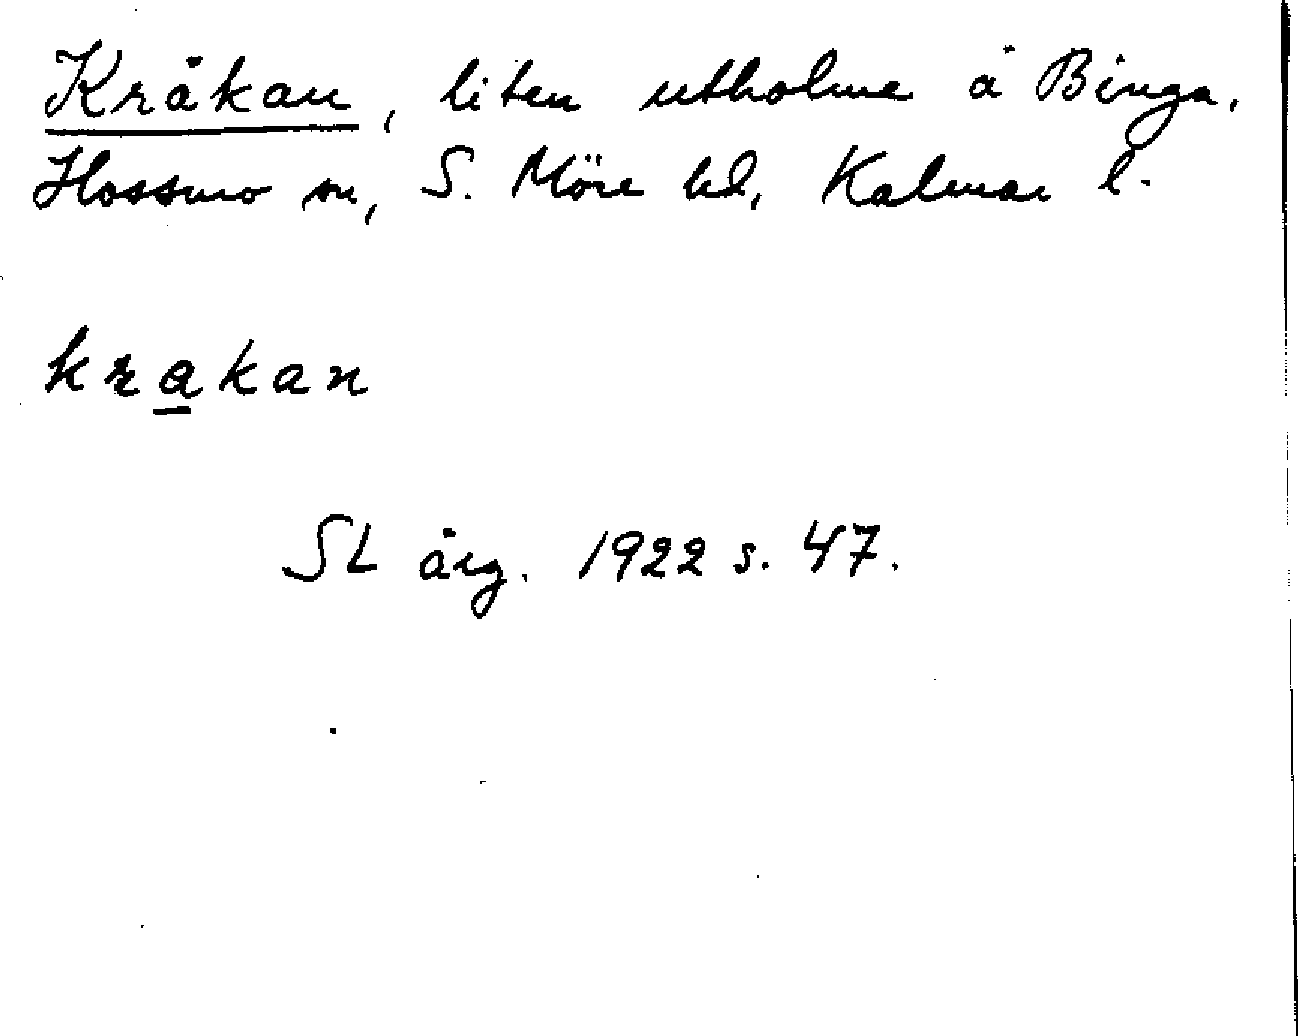 Kråkan, liten utholme å Binga,
Hossmo sn, S. Möre hd, Kalmar l.
krakan
SL årg. 1922 s. 47.